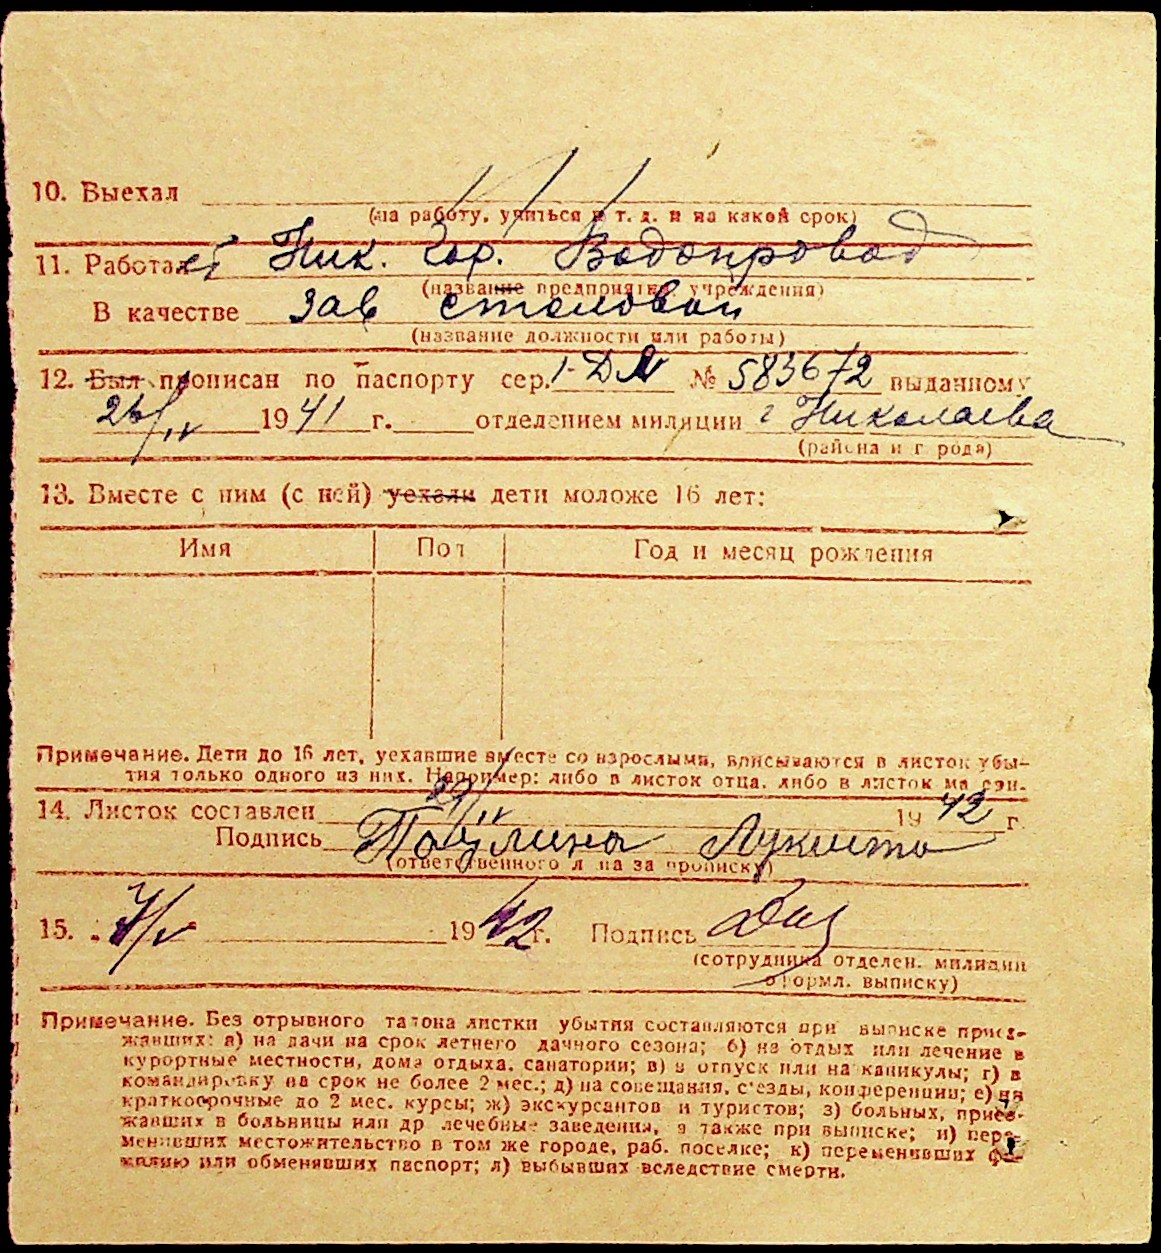 10. Выехал
(на работу, учиться и т. д. и на какой срок)
11. Работает Ник. Гор. Водопровод
(название предприятия, учреждения)
В качестве Зав столовой
(название должности или работы)
12. Был прописан по паспорту сер. 1-ДМ № 583672 выданному
26/IV 1941 г. отделением милиции г Николаева
(района и города)
13. Вместе с ним (с ней) уехали дети моложе 16 лет:
Имя Пол Год и месяц рождения
Примечание. Дети до 16 лет, уехавшие вместе со взрослыми, вписываются в листок убы-
тия только одного из них. Например: либо в листок отца, либо в листок матери.
14. Листок составлен 29/IV 1942 г.
Подпись
(ответственного лица за прописку)
15. 7/V 1942 г. Подпись
(сотрудника отделен. милиции
оформл. выписку)
Примечание. Без отрывного талона листки убытия составляются при выписке приез-
жавших: а) на дачи на срок летнего дачного сезона; б) на отдых или лечение в
курортные местности, дома отдыха, санатории; в) в отпуск или на каникулы; г) в
командировку на срок не более 2 мес.; д) на совещания, съезды, конференции; е) на
краткосрочные до 2 мес. курсы; ж) экскурсантов и туристов; з) больных, приез-
жавших в больницы или др лечебные заведения, а также при выписке; и) пере-
менивших местожительство в том же городе, раб. поселке; к) переменивших фа-
милию или обменявших паспорт; л) выбывших вследствие смерти.